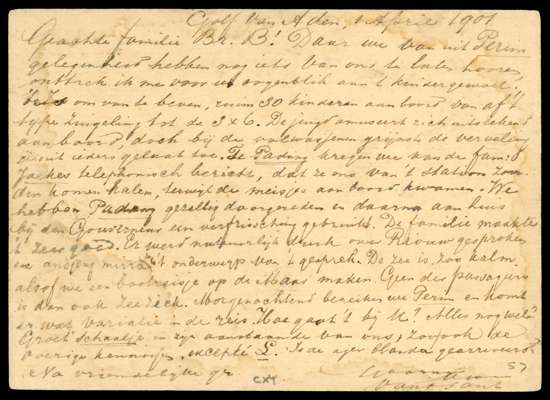 Golf van Aden, 1 April 1901
Geachte familie Br. B! Daar we van uit Perim
gelegenheid hebben nog iets van ons te laten hooren,
onttrek ik me voor een oogenblik aan 't kindergewoel.
om van te beven, ruim 30 kinderen aan boord, van af 't
type zuigeling tot de 3 x 6. De jeugd amuseert zich uitstekend
aan boord, doch bij de volwassenen grijnst de verveling
uit ieders gelaat toe. Te Padang kregen we van de fam.
Jackes telephonisch bericht, dat ze ons van 't station zou-
den komen halen, terwijl de meisjes aan boord kwamen. We
hebben Padang gezellig doorgereden en daarna aan huis
bij den Gouverneur een verfrissching gebruikt. De familie maakte
't zeer goed. Er werd natuurlijk druk over Riouw gesproken
't onderwerp van 't gesprek. De zee is zoo kalm
alsof we een bootreisje op de Maas maken. Geen der passagiers
is dan ook zeeziek. Morgenochtend bereiken we Perim en komt
er wat variatie in de reis. Hoe gaat 't bij U? Alles nog wel?
Groet Schaatje en zijn aanstaande van ons, zoo ook de
overige kennissen, excepté L. Is de ajer blanda gearriveerd?
Na vriendelijke gr.
CXT
57